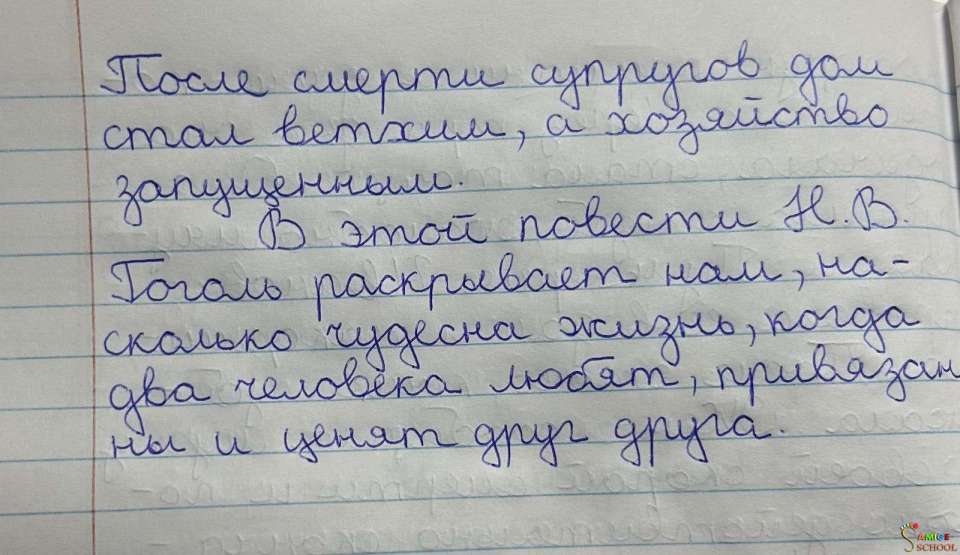 После смерти супругов дом
стал ветхим, а хозяйство
запущенным.
В этой повести Н.В.
Гоголь раскрывает нам, на-
сколько чудесна жизнь, когда
два человека любят, привязан
ны и ценят друг друга.
AMICE
SCHOOL